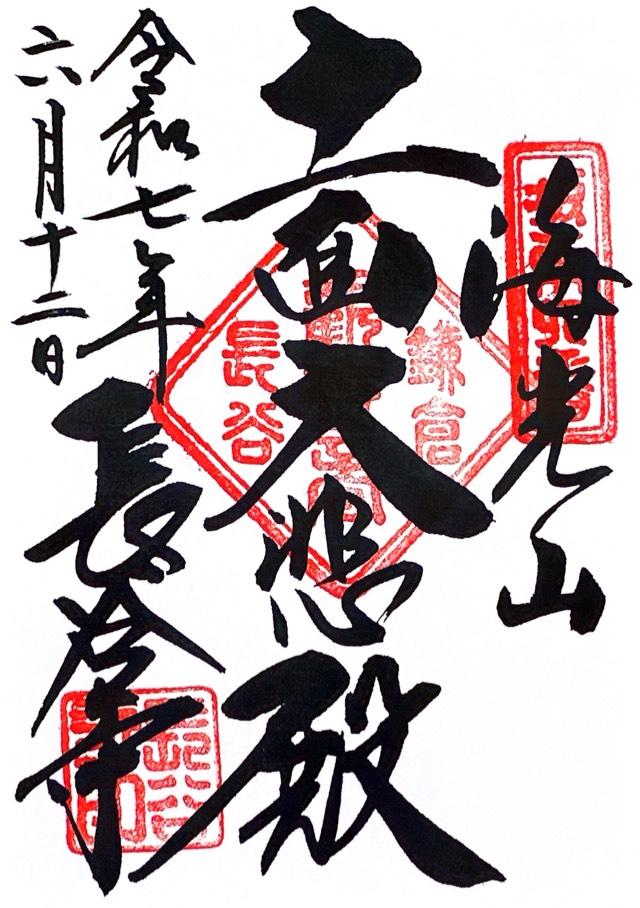 海光山
十一面大悲殿
長谷寺
令和七年
六月十二日
鎌倉
長谷